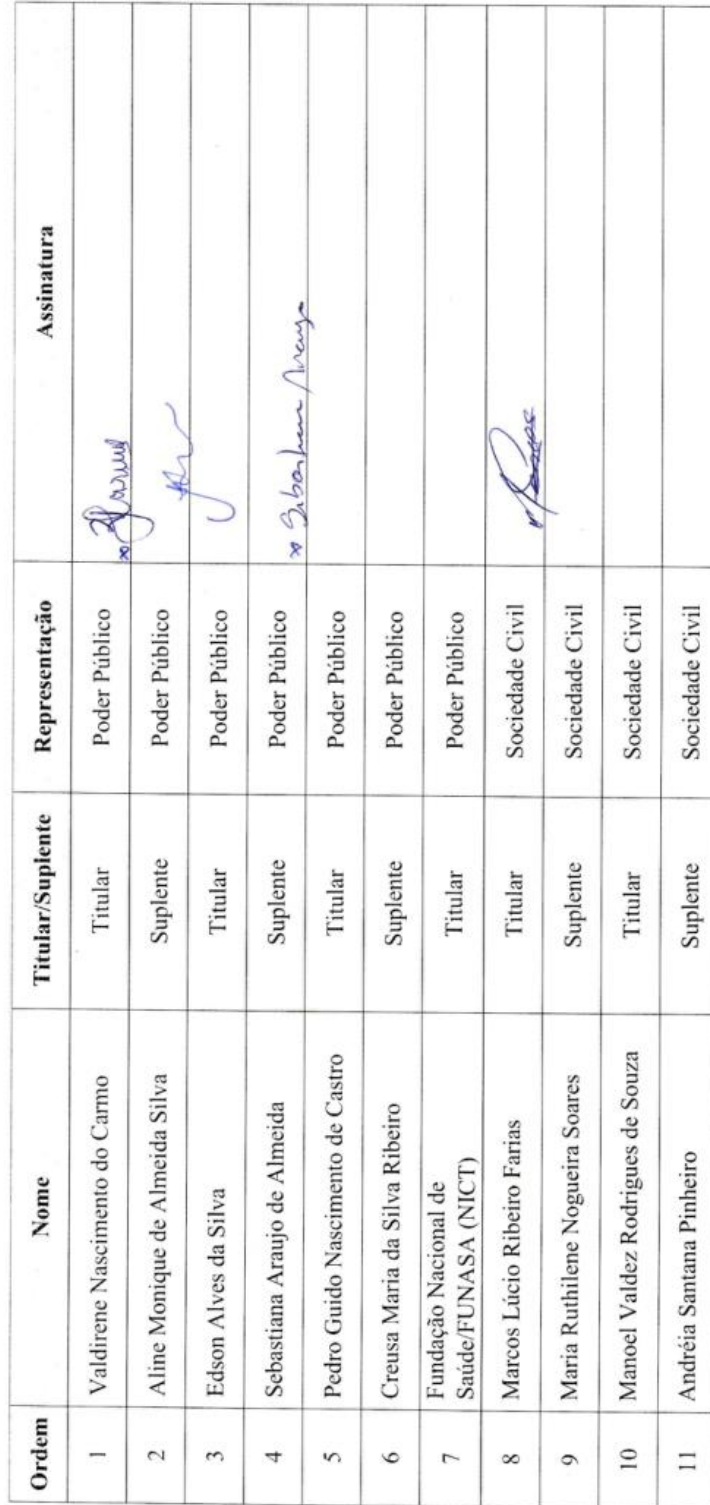 Ordem Nome Titular/Suplente Representação Assinatura
1 Valdirene Nascimento do Carmo Titular Poder Público
2 Aline Monique de Almeida Silva Suplente Poder Público
3 Edson Alves da Silva Titular Poder Público
4 Sebastiana Araujo de Almeida Suplente Poder Público
5 Pedro Guido Nascimento de Castro Titular Poder Público
6 Creusa Maria da Silva Ribeiro Suplente Poder Público
7 Fundação Nacional de
Saúde/FUNASA (NICT) Titular Poder Público
8 Marcos Lúcio Ribeiro Farias Titular Sociedade Civil
9 Maria Ruthilene Nogueira Soares Suplente Sociedade Civil
10 Manoel Valdez Rodrigues de Souza Titular Sociedade Civil
11 Andréia Santana Pinheiro Suplente Sociedade Civil